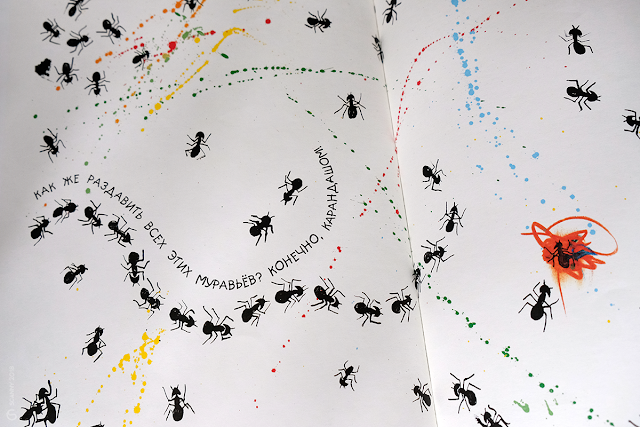 КАК ЖЕ РАЗДАВИТЬ ВСЕХ ЭТИХ МУРАВЬЁВ? КОНЕЧНО, КАРАНДАШОМ!